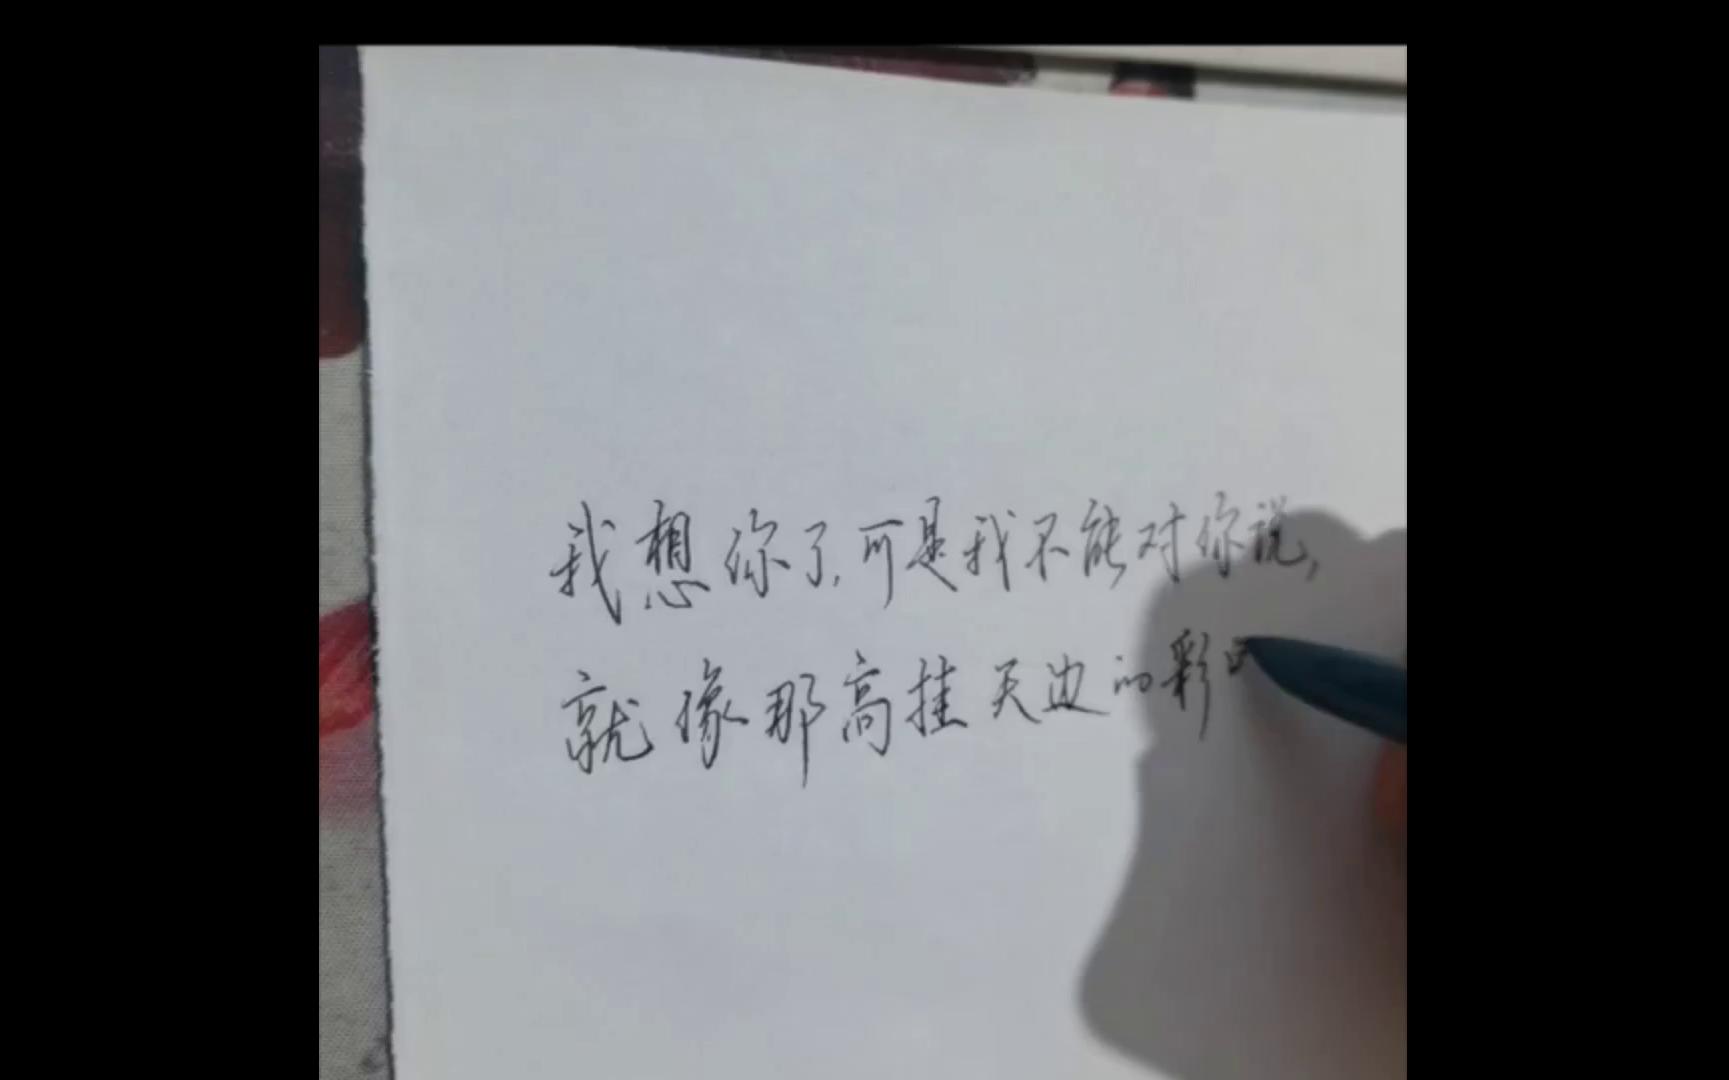 我想你了,可是我不能对你说,
就像那高挂天边的彩